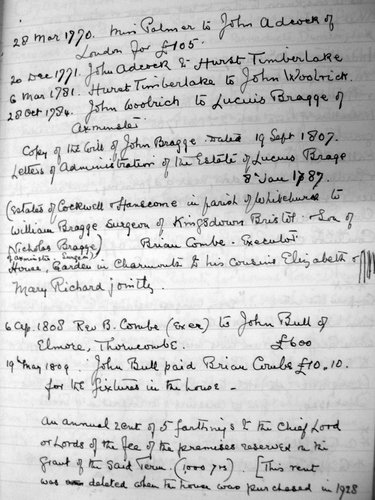 28 Mar 1770. Miss Palmer to John Adcock of
London for £105.
20 Dec 1771. John Adcock to Hurst Timberlake
6 Mar 1781. Hurst Timberlake to John Woolrich.
28 Oct 1784. John Woolrich to Lucius Bragge of
Axminster.
Copy of the Will of John Bragge. Dated 19 Sept 1807.
Letters of Administration of the Estate of Lucius Bragge
8th Jan 1787.
(Estates of Cockwell & Hanscome in parish of Whitchurch to
William Bragge Surgeon of Kingsdown Bristol. Son of
Nicholas Bragge) Brian Combe. Executor
of Axminster. Surgeon)
House, Garden in Charmouth to his cousins Elizabeth &
Mary Richard jointly.
6 Ap. 1808 Rev B. Combe (Exer) to John Bull of
Elmore, Thorncombe. £600
19th May 1809. John Bull paid Brian Combe £10.10.
for the fixtures in the house -
An annual rent of 5 farthings to the Chief Lord
or Lords of the fee of the premises reserved in the
grant of the said Term. (1000 yrs). [This rent
was deleted when the house was purchased in 1928